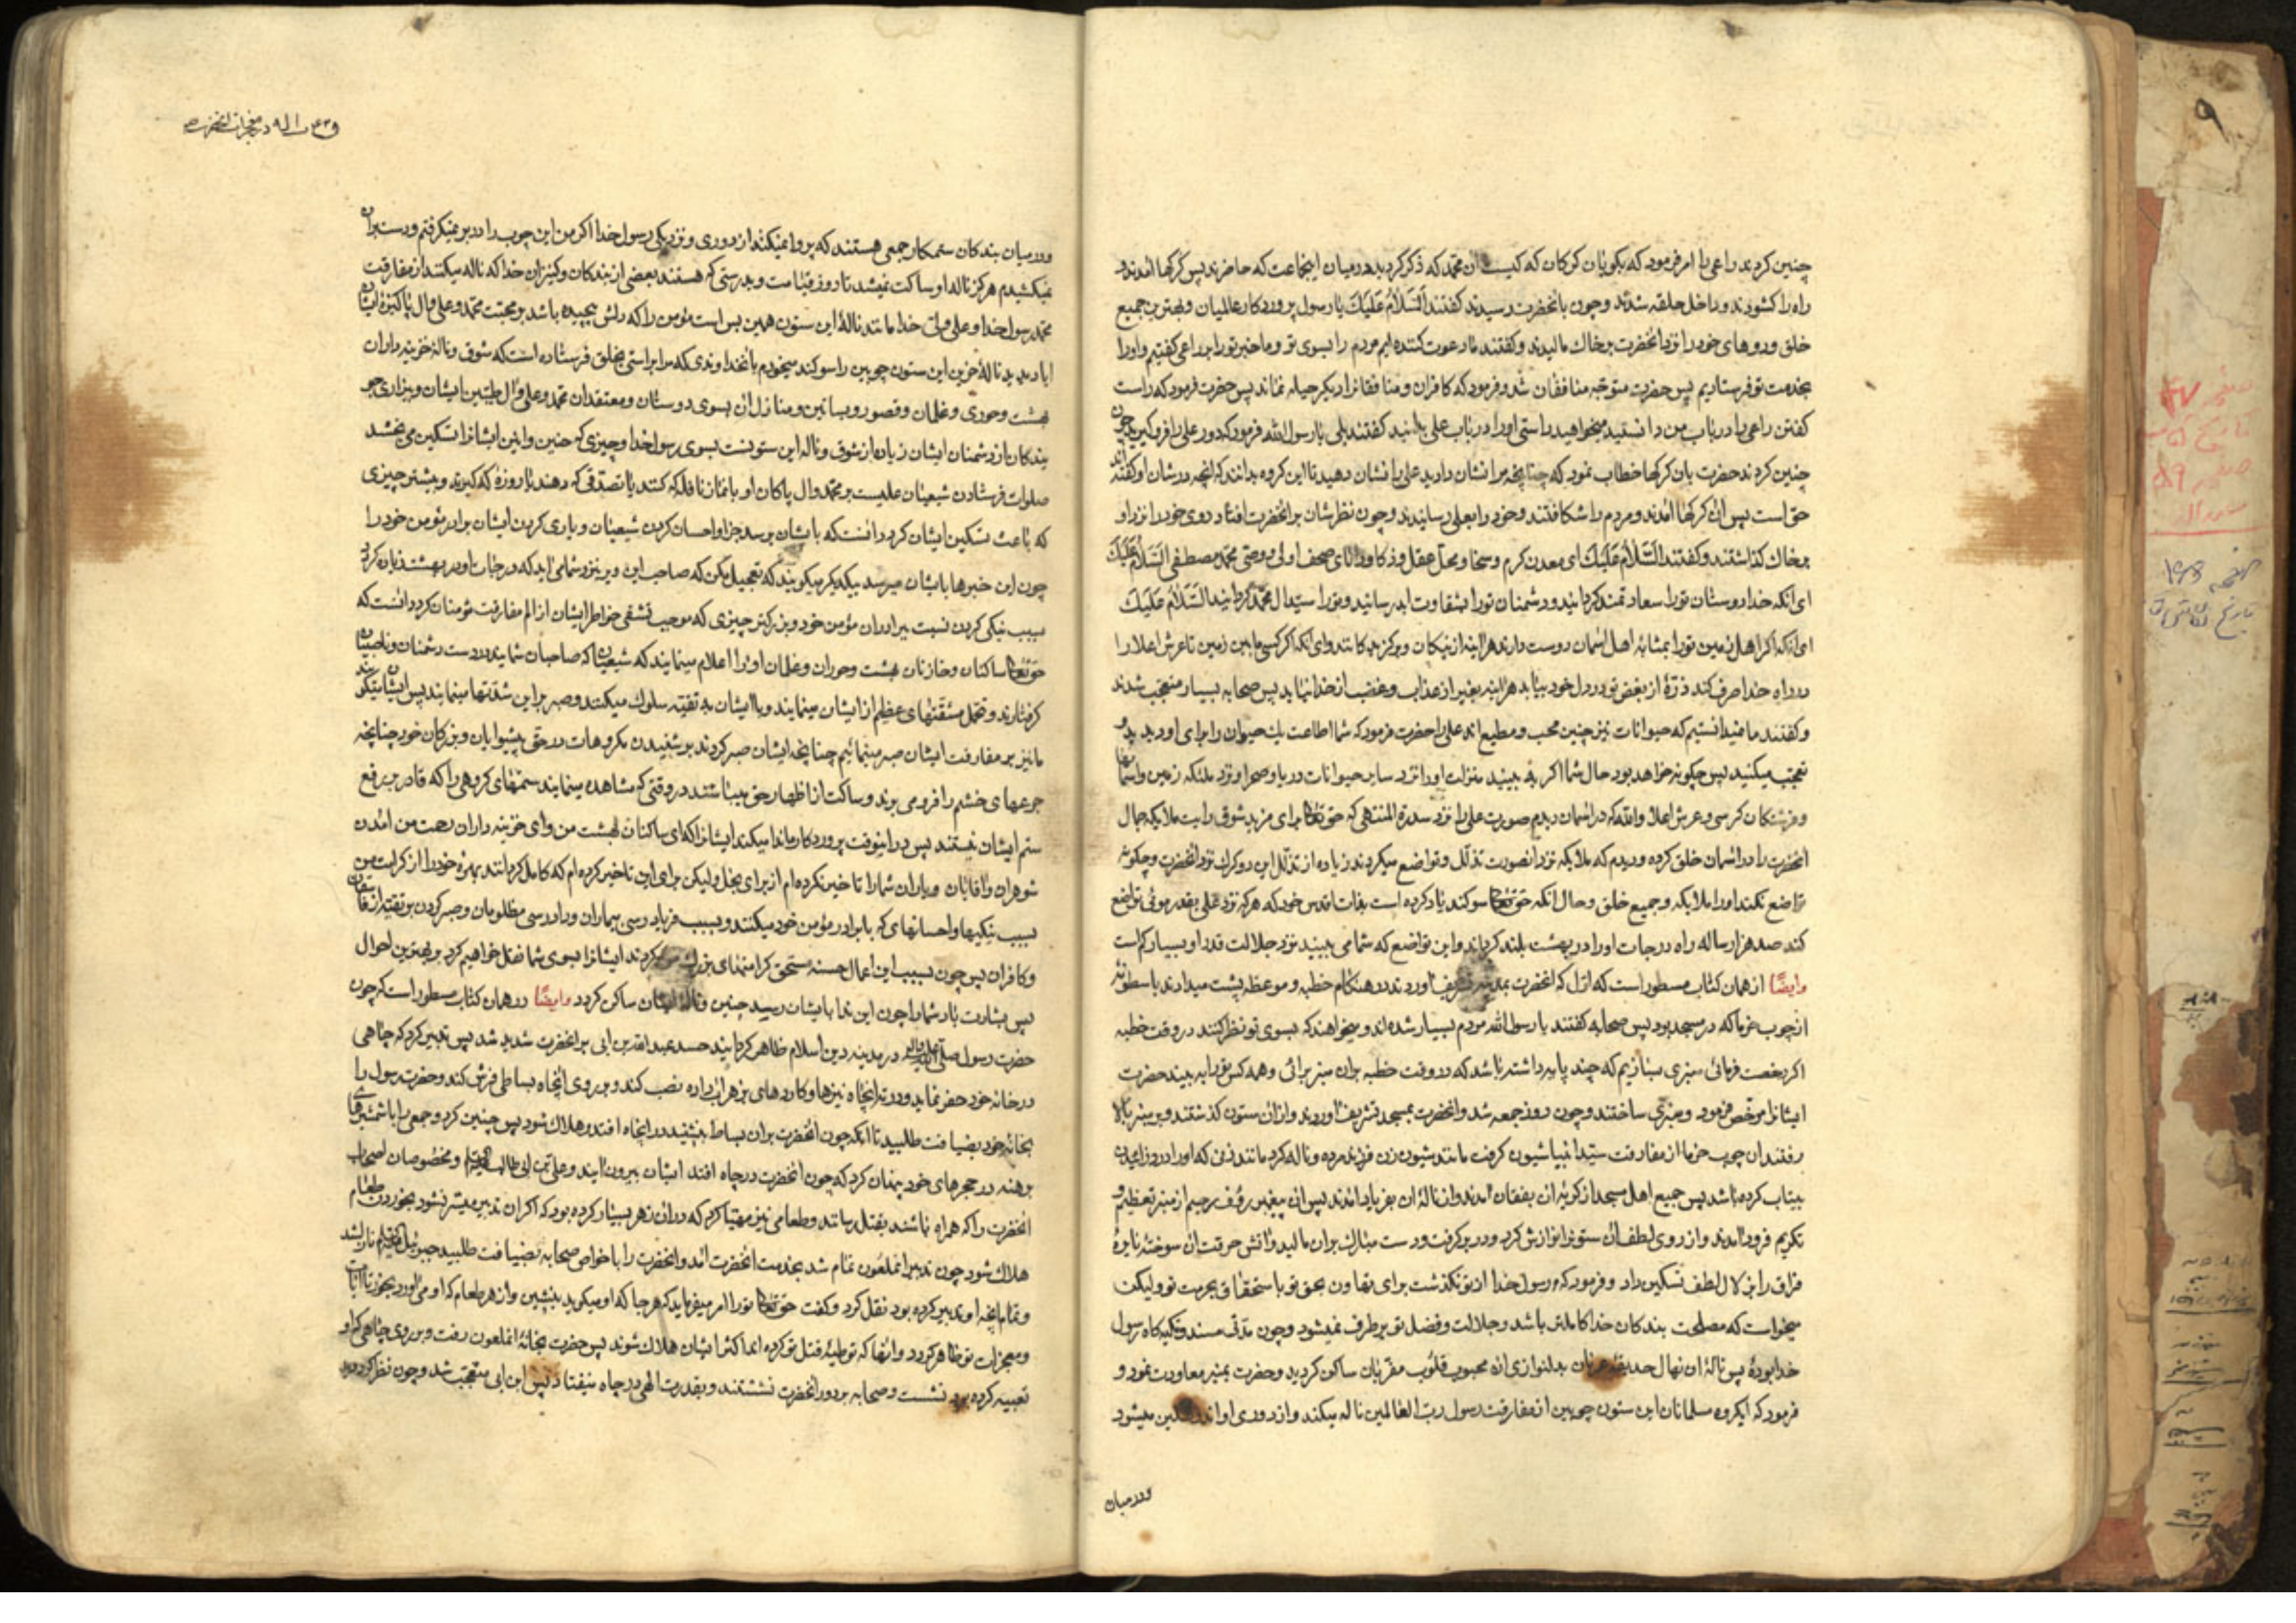 چنین کردند راعی را امر فرمود که بکو یان کرکان که کیست ان محمد که ذکر کردید در میان اینجماعت که حاضرند پس کرکها امدند و
راه را کشودند و داخل حلقه شدند و چون بانحضرت رسیدند کفتند السلام علیک یا رسول پروردکار عالمیان و بهترین جمیع
خلق و روهای خود را نزد انحضرت بر خاک مالیدند و کفتند ما دعوت کننده ایم مردم را بسوی تو و ما خبر تو را براعی کفتیم و او را
بخدمت تو فرستادیم پس حضرت متوجه منافقان شد و فرمود که کافران و منافقانرا دیکر حیله نماند پس حضرت فرمود که راست
کفتن راعی را در باب من دانستید میخواهید راستی او را در باب علی بدانید کفتند بلی یا رسول الله فرمود که دور علی را فرو کیرید چون
چنین کردند حضرت بان کرکها خطاب نمود که چنانچه مرا نشان دادید علی را نشان دهید تا این کروه بدانند که انچه در شان او کفته اند
حق است پس ان کرکها امدند و مردم را شکافتند و خود را بعلی رسانیدند و چون نظرشان بر انحضرت افتاد روی خود را نزد او
بر خاک کذاشتند و کفتند السلام علیک ای معدن کرم و سخا و محل عقل و ذکا و دانای صحف اولی و وصی محمد مصطفی السلام علیک
ای انکه خدا دوستان تو را سعادتمند کردانید و دشمنان تو را بشقاوت ابد رسانید و تو را سید ال محمد کردانید السلام علیک
ای انکه اکر اهل زمین تو را بمثابه اهل اسمان دوست دارند هر اینه از نیکان و بر کزیدکانند و ای انکه اکر کسی مابین زمین تا عرش اعلا را
در راه خدا صرف کند و ذرۀ از بغض تو در دل خود بیابد هر اینه بغیر از عذاب و غضب از خدا نیابد پس صحابه بسیار متعجب شدند
و کفتند ما نمیدانستیم که حیوانات نیز چنین محب و مطیع اند علی را حضرت فرمود که شما اطاعت یک حیوان را برای او دیدید و
تعجب میکنید پس چکونه خواهد بود حال شما اکر ببینید منزلت او را نزد سایر حیوانات دریا و صحرا و نزد ملئکه زمین و اسمانها
و فرشتکان کرسی و عرش اعلا والله که در اسمان دیدم صورت علی را نزد سدرة المنتهی که حق تعالی برای مزید شوق رایت ملائکه جمال
انحضرت را در اسمان خلق کرده و دیدم که ملائکه نزد انصورت تذلل و تواضع میکردند زیاده از تذلل این دو کرک نزد انحضرت و چکونه
تواضع نکنند او را ملائکه و جمیع خلق و حال انکه حق تعالی سوکند یاد کرده است بذات اقدس خود که هر که نزد علی بقدر موئی تواضع
کند صد هزار ساله راه درجات او را در بهشت بلند کرداند و این تواضع که شما می بینید نزد جلالت قدر او بسیار کم است
وایضًا از همان کتاب مسطور است که اول که انحضرت بمدینه تشریف اوردند در هنکام خطبه و موعظه پشت میدادند باسطوانۀ
از چوب خرما که در مسجد بود پس صحابه کفتند یا رسول الله مردم بسیار شده اند و میخواهند که بسوی تو نظر کنند در وقت خطبه
اکر رخصت فرمائی منبری بسازیم که چند پایه داشته باشد که در وقت خطبه بران منبر برائی و همه کس تو را به بیند حضرت
ایشانرا مرخص فرمود و منبری ساختند و چون روز جمعه شد و انحضرت بمسجد تشریف اوردند و از ان ستون کذشتند و بر منبر بالا
رفتند ان چوب خرما از مفارقت سید انبیا شیون کرفت مانند شیون زن فرزند مرده و ناله کرد مانند زنی که او را درد زائیدن
بیتاب کرده باشد پس جمیع اهل مسجد از کریۀ ان بفغان امدند و از نالۀ ان بفریاد امدند پس ان پیغمبر رؤف رحیم از منبر تعظیم و
تکریم فرود امدند و از روی لطف ان ستونرا نوازش کرد و در بر کرفت و دست مبارک بران مالید و اتش حرقت ان سوختۀ نایرۀ
فراق را بزلال لطف تسکین داد و فرمود که رسول خدا از تو نکذشت برای تهاون بحق تو یا استخفاف بحرمت تو ولیکن
میخواست که مصلحت بندکان خدا کاملتر باشد و جلالت و فضل تو برطرف نمیشود و چون مدتی مسند و تکیه کاه رسول
خدا بودۀ پس نالۀ ان نهال حدیقه عرفان بدلنوازی ان محبوب قلوب مقربان ساکن کردید و حضرت بمنبر معاودت نمود و
فرمود که ایکروه مسلمانان این ستون چوبین از مفارقت رسول رب العالمین ناله میکند و از دوری او اندوهکین میشود
ودر میان
در معجزات انحضرت
ودر میان بندکان ستمکار جمعی هستند که پروا نمیکنند از دوری و نزدیکی رسول خدا اکر من این چوب را در بر نمیکرفتم و دست بران
نمیکشیدم هرکز ناله او ساکت نمیشد تا روز قیامت و بدرستی که هستند بعضی از بندکان و کنیزان خدا که ناله میکنند از مفارقت
محمد رسول خدا و علی ولی خدا مانند نالۀ این ستون همین بس است مؤمن را که دلش پیچیده باشد بر محبت محمد و علی و ال پاکیزۀ ایشان
ایا دیدید نالۀ حزین این ستون چوبین را سوکند میخورم بانخداوندی که مرا براستی بخلق فرستاده است که شوق و نالۀ خزینه داران
بهشت و حوری و غلمان و قصور و بساتین و منازل ان بسوی دوستان و معتقدان محمد و علی و ال طیبین ایشان و بیزاری جو
یندکان از دشمنان ایشان زیاده از شوق و ناله این ستونست بسوی رسول خدا و چیزی که حنین و انین ایشانرا تسکین می بخشد
صلوات فرستادن شیعیان علیست بر محمد و ال پاکان او یا نماز نافله که کنند یا تصدقی که دهند یا روزۀ که کیرند و بیشتر چیزی
که باعث تسکین ایشان کردد انست که بایشان برسد جزا و احسان کردن شیعیان و یاری کردن ایشان برادر مؤمن خود را
چون این خبرها بایشان میرسد بیکدیکر میکویند که تعجیل مکن که صاحب این دیر نزد شما می اید که درجات او در بهشت زیاده کردد
بسبب نیکی کردن نسبت ببرادران مؤمن خود و بزرکتر چیزی که موجب تشفی خواطر ایشان از الم مفارقت مؤمنان کردد انست که
حق تعالی ساکنان و خازنان بهشت و حوران و غلمان او را اعلام مینمایند که شیعیانی که صاحبان شمایند در دست دشمنان و ناصبیان
کرفتارند و تحمل مشقتهای عظیم از ایشان مینمایند و با ایشان به تقیه سلوک میکنند و صبر بر این شدتها مینمایند پس ایشان میکویند
ما نیز بر مفارقت ایشان صبر مینمائیم چنانچه ایشان صبر کردند بر شنیدن مکروهات در حق پیشوایان و بزرکان خود چنانچه
جرعهای خشم را فرو می برند و ساکت از اظهار حق میباشند در وقتی که مشاهده مینمایند ستمهای کروهی را که قادر بر دفع
ستم ایشان نیستند پس در اینوقت پروردکار ما ندا میکند ایشانرا که ای ساکنان بهشت من و ای خزینه داران رحمت من امدن
شوهران و اقایان و یاران شما را تاخیر نکرده ام از برای بخل ولیکن برای این تاخیر کرده ام که کامل کردانند بهرۀ خود را از کرامت من
بسبب نیکیها و احسانهای که با برادر مؤمن خود میکنند و بسبب فریادرسی بیماران و دادرسی مظلومان و صبر کردن بر تقیه از فاسقان
و کافران پس چون بسبب این اعمال حسنه مستحق کرامتهای بزرک من کردند ایشانرا بسوی شما نقل خواهیم کرد بر بهترین احوال
پس بشارت باد شما را چون این ندا بایشان رسید حنین و نالۀ ایشان ساکن کردد وایضًا در همان کتاب مسطور است که چون
حضرت رسول صلی الله علیه واله در مدینه دین اسلام ظاهر کردانید حسد عبدالله بن ابی بر انحضرت شدید شد پس تدبیر کرد که چاهی
در خانۀ خود حفر نماید و در ته انچاه نیزها و کاردهای بزهر اب داده نصب کند و بر روی انچاه بساطی فرش کند و حضرت رسول را
بخانۀ خود بضیافت طلبید تا انکه چون انحضرت بران بساط بنشیند در انچاه افتد و هلاک شود پس چنین کرد و جمعی را با شمشیرهای
برهنه در حجرهای خود پنهان کرد که چون انحضرت در چاه افتد ایشان بیرون ایند و علی بن ابی طالب و مخصوصان اصحاب
انحضرت را که همراه باشند بقتل رسانند و طعامی نیز مهیا کرد که در ان زهر بسیار کرده بود که اکر ان تدبیر میسر نشود بخوردن طعام
هلاک شود چون تدبیر انملعون تمام شد بخدمت انحضرت امد و انحضرت را با خواص صحابه بضیافت طلبید جبرئیل نازل شد
و تمام انچه او تدبیر کرده بود نقل کرد و کفت حق تعالی تو را امر میفرماید که هر جا که او میکوید بنشین و از هر طعام که او می اورد بخور تا ایات
و معجزات تو ظاهر کردد و انها که توطیۀ قتل تو کرده اند اکثر ایشان هلاک شوند پس حضرت بخانۀ انملعون رفت و بر روی چاهی که او
تعبیه کرده بود نشست و صحابه بر دور انحضرت نشستند و بقدرت الهی در چاه نیفتادند پس ابن ابی متعجب شد و چون نظر کرد دید